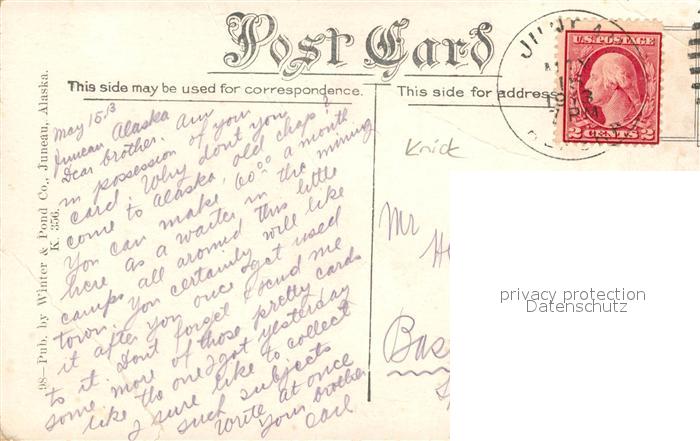 Post Card
This side may be used for correspondence.
This side for address
98—Pub. by Winter & Pond Co., Juneau, Alaska.
K. 356.
U.S. POSTAGE
2 CENTS 2
May 15. 13
Juneau Alaska
Dear brother. Am
in possession of your
card. Why dont you
come to Alaska, old chap?
You can make 60.00 a month
here as a waiter in the mining
camps all around this little
town. You certainly will like
it after you once get used
to it. Dont forget & send me
some more of those pretty cards
like the one I got yesterday
I sure like to collect
such subjects
Write at once
Your brother
Carl
Knick
Mr
Bas
privacy protection
Datenschutz